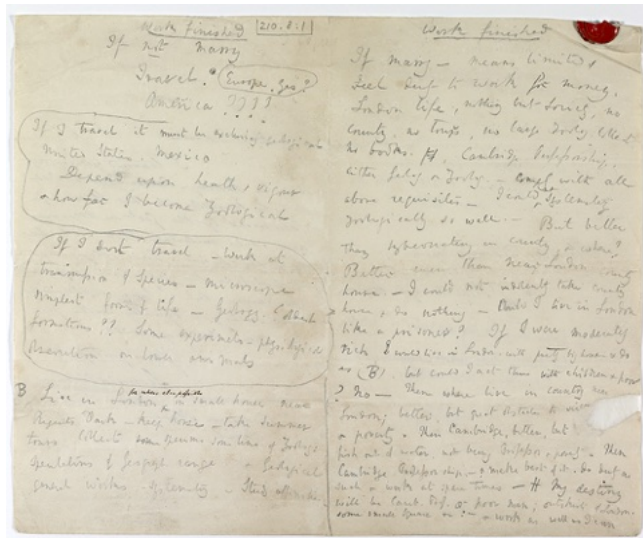 Work finished
210.8:1
If not marry
Travel. Europe, Yes?
America ????
If I travel it must be exclusively geological
United States, Mexico
Depend upon health & vigour
& how far I become Zoological
If I dont travel — Work at
transmission of Species — microscope
simplest forms of life — Geology.
formations?? Some experiments — physiological
observation on lower animals
B Live in London for where else possible in small house near
Regents Park — Keep horse — take summer
tours Collect specimens some line of Zoolog:
speculations of Geograph. range & Geological
general works
Work finished
If marry — means limited,
Feel duty to work for money.
London life, nothing but Society, no
country, no tours, no large Zoolog. Collect.
no books. Cambridge Professorship,
either Geolog. or Zoolog. — comply with all
above requisites — I could not systematiz
zoologically so well. — But better
than hybernating in country, & where?
Better even than near London country
house. — I could not indolently take country
house & do nothing — Could I live in London
like a prisoner? If I were moderately
rich I would live in London, with pretty big house & do
as (B), but could I act thus with children & poor
? No — Then where live in country near
London; better, but great obstacles to science
& poverty. Then Cambridge, better, but
fish out of water, not being Professor & poverty. Then
Cambridge Professorship, — & make best of it, do duty as
such & work at spare times — My destiny
will be Camb. Prof. or poor man; outskirts of London
some small Square &c: — & work as well as I can